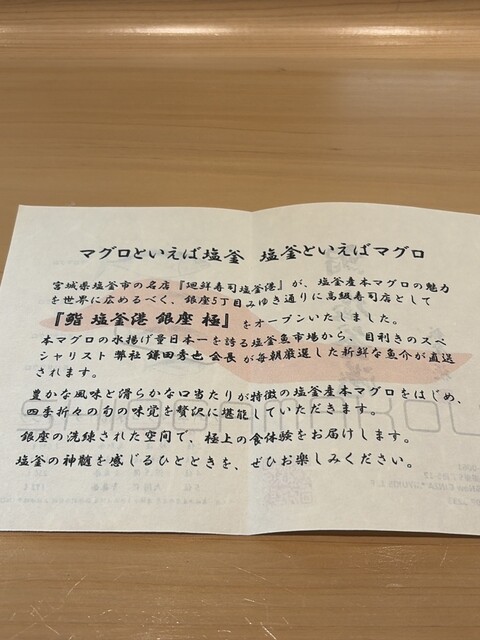 マグロといえば塩釜　塩釜といえばマグロ
宮城県塩釜市の名店『廻鮮寿司塩釜港』が、塩釜産本マグロの魅力
を世界に広めるべく、銀座5丁目みゆき通りに高級寿司店として
『鮨 塩釜港 銀座 極』をオープンいたしました。
本マグロの水揚げ量日本一を誇る塩釜魚市場から、目利きのスペ
シャリスト 弊社 鎌田秀也 会長 が毎朝厳選した新鮮な魚介が直送
されます。
豊かな風味と滑らかな口当たりが特徴の塩釜産本マグロをはじめ、
四季折々の旬の味覚を贅沢に堪能していただきます。
銀座の洗練された空間で、極上の食体験をお届けします。
塩釜の神髄を感じるひとときを、ぜひお楽しみください。